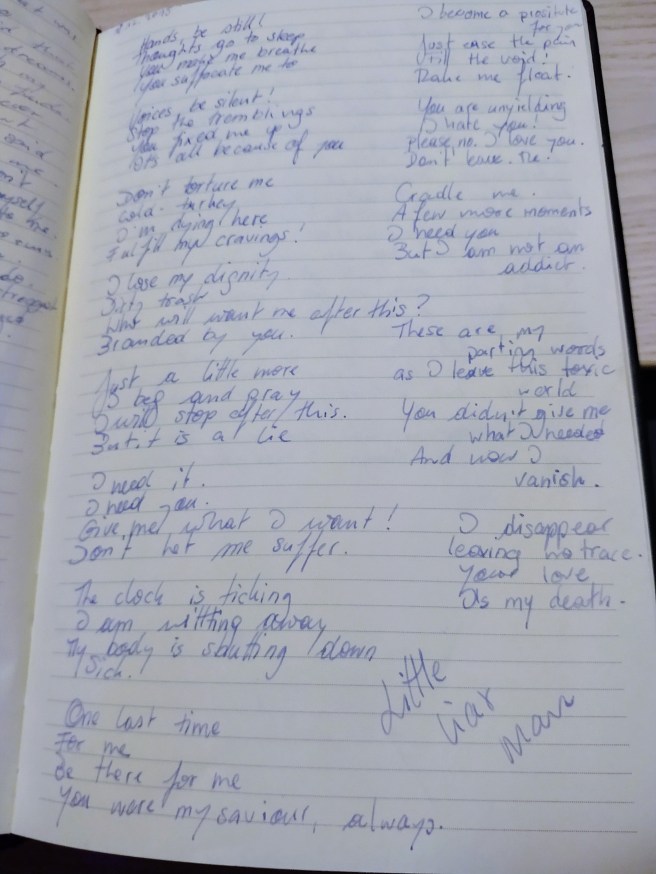 Hands, be still!
Thoughts go to sleep
You make me breathe
you suffocate me to
Voices be silent!
Stop the tremblings
You fixed me up
It's all because of you
Don't torture me
cold-turkey
I'm dying here
Fulfill my cravings!
I lose my dignity
Dirty trash
Who will want me after this?
Branded by you.
Just a little more
I beg and pray
I will stop after this.
But it is a lie
I need it.
I need you.
Give me what I want!
Don't let me suffer.
The clock is ticking
I am wilting away
My body is shutting down
Sick.
One last time
For me
Be there for me
You were my saviour, always.
I become a prostitute
for you
Just ease the pain
Fill the void!
Make me float.
You are unyielding
I hate you!
Please, no. I love you.
Don't leave me.
Cradle me.
A few more moments
I need you
But I am not an
addict.
These are my
parting words
as I leave this toxic
world
You didn't give me
what I needed
And now I
vanish.
I disappear
leaving no trace.
Your love
Is my death.
Little
liar
man